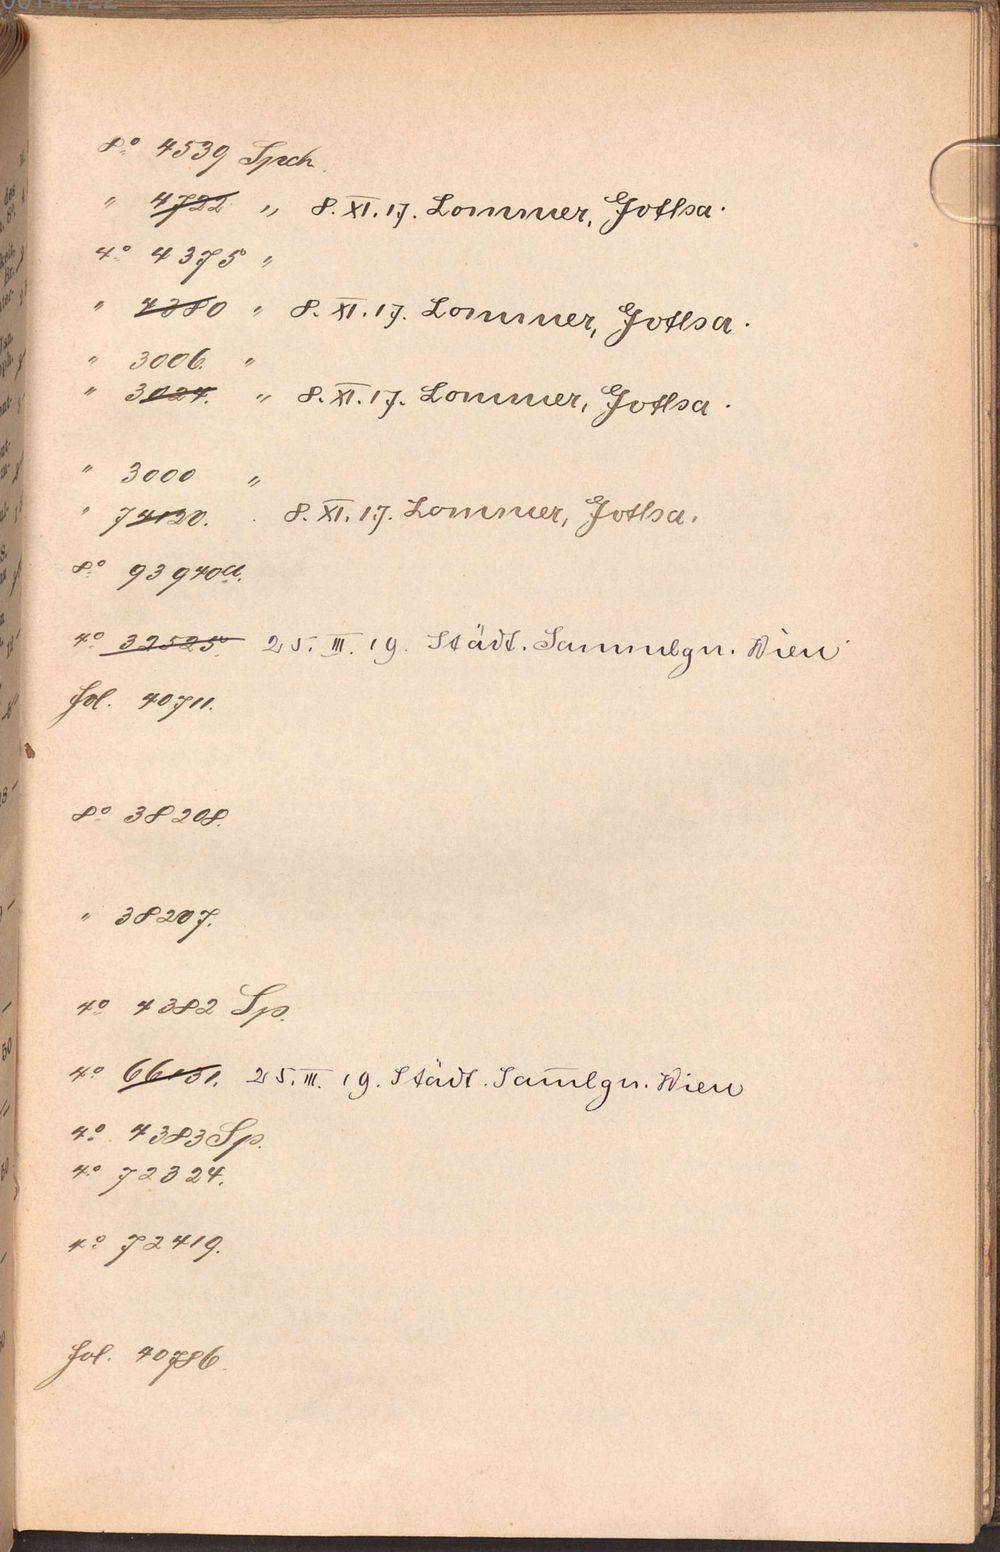 8° 4539 Spch.
" 4722 " 8. XI. 17. Lommer, Gotha.
4° 4375 "
" 4380 " 8. XI. 17. Lommer, Gotha.
" 3006. "
" 3024. " 8. XI. 17. Lommer, Gotha.
" 3000 "
" 74120. 8. XI. 17. Lommer, Gotha.
8° 93940a.
4° 32525. 25. III. 19. Städt. Sammlgn. Wien
fol. 40711.
8° 38208.
" 38207.
4° 4382 Sp.
4° 66151. 25. III. 19. Städt. Sam̅lgn. Wien
4° 4383 Sp.
4° 72324.
4° 72419.
fol. 40786.